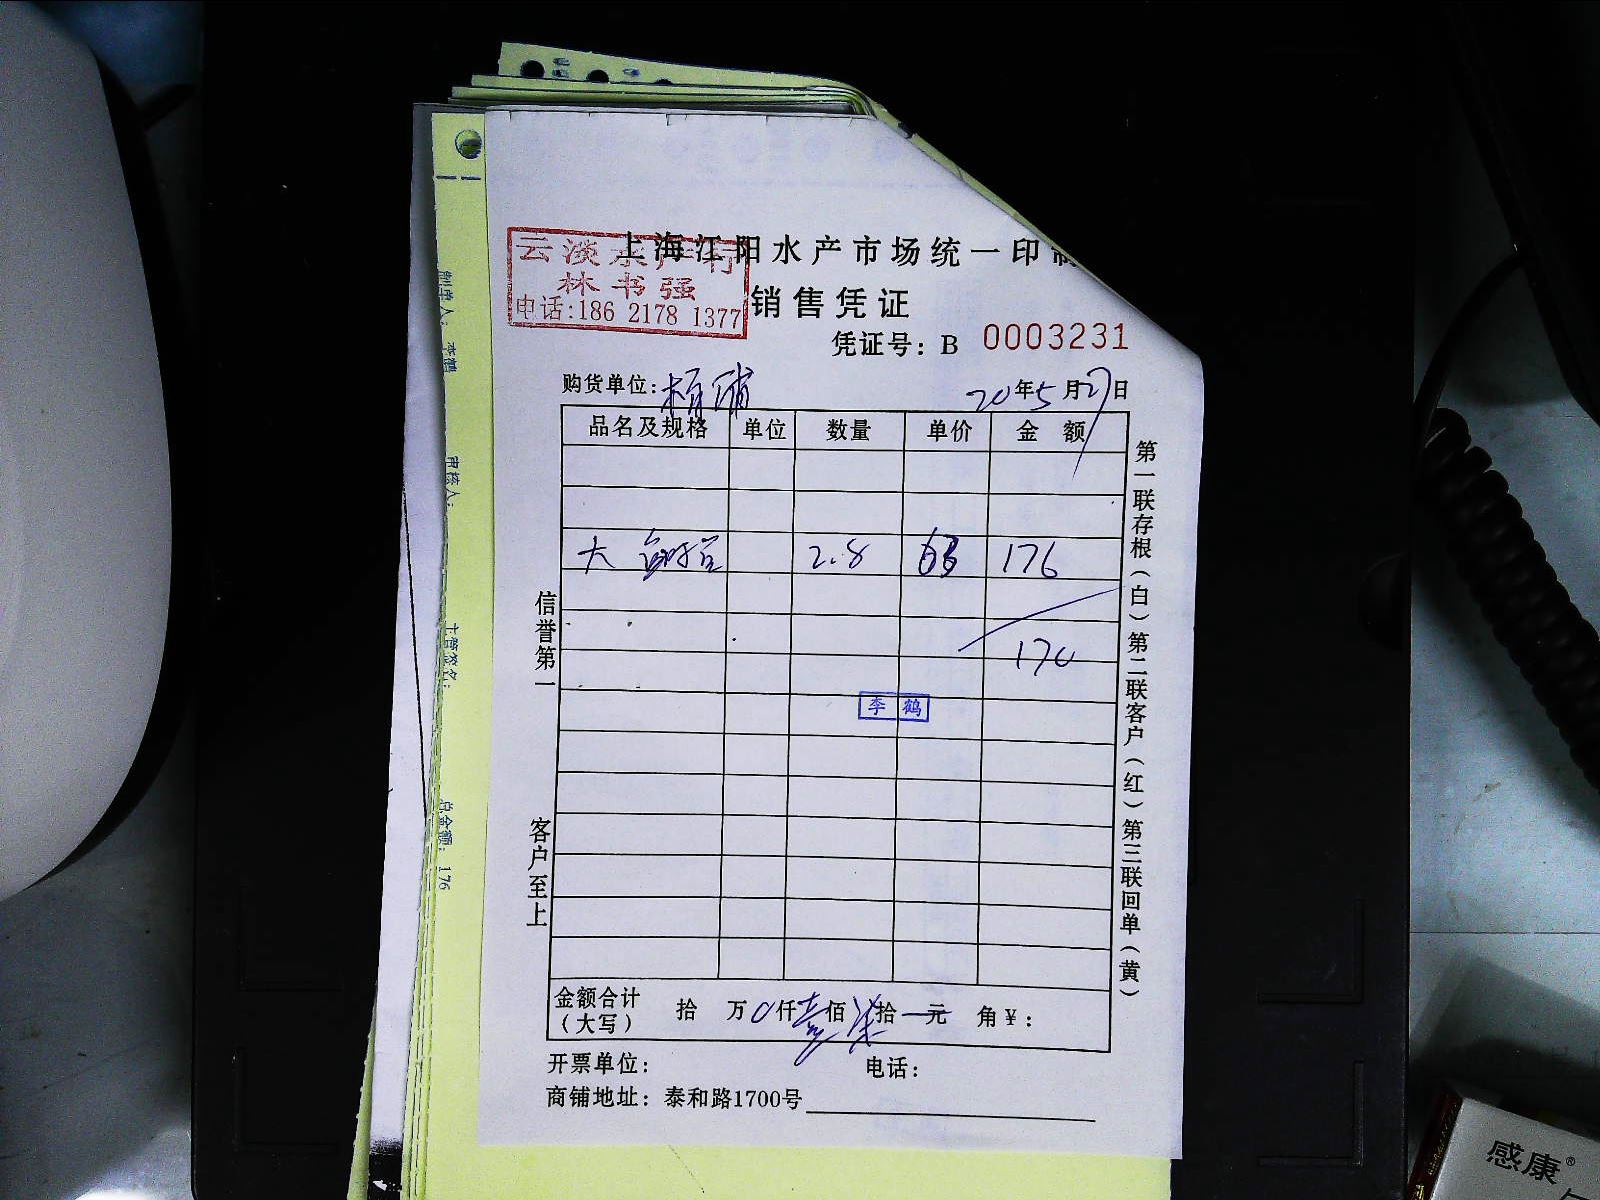 上海江阳水产市场统一印制
云淡水产行
林书强
电话:186 2178 1377
销售凭证
凭证号: B 0003231
购货单位:
20年5月27日
品名及规格 单位 数量 单价 金额
大 2.8 63 176
170
李鹤
信誉第一
客户至上
第一联存根(白)第二联客户(红)第三联回单(黄)
金额合计(大写) 拾 万0仟壹佰柒拾一元 角¥:
开票单位: 电话:
商铺地址: 泰和路1700号
制单人: 李鹤
审核人:
主管签名:
总金额: 176
感康®